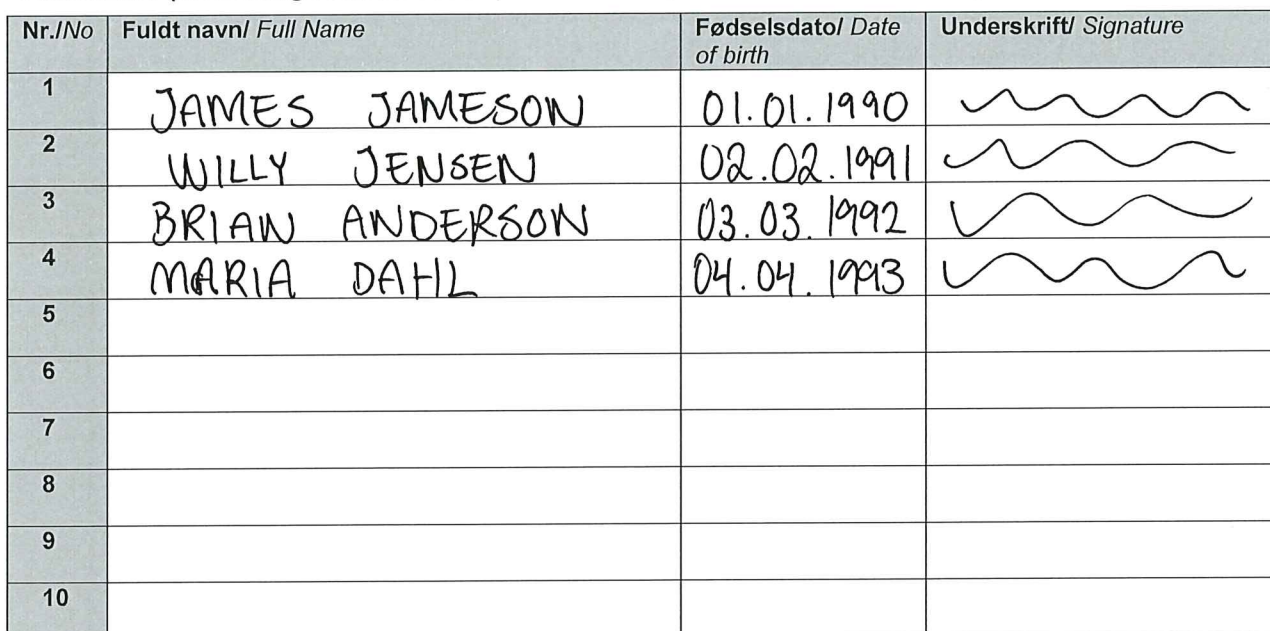 Nr./No Fuldt navn/ Full Name Fødselsdato/ Date of birth Underskrift/ Signature
1 JAMES JAMESON 01.01.1990
2 WILLY JENSEN 02.02.1991
3 BRIAN ANDERSON 03.03.1992
4 MARIA DAHL 04.04.1993
5
6
7
8
9
10